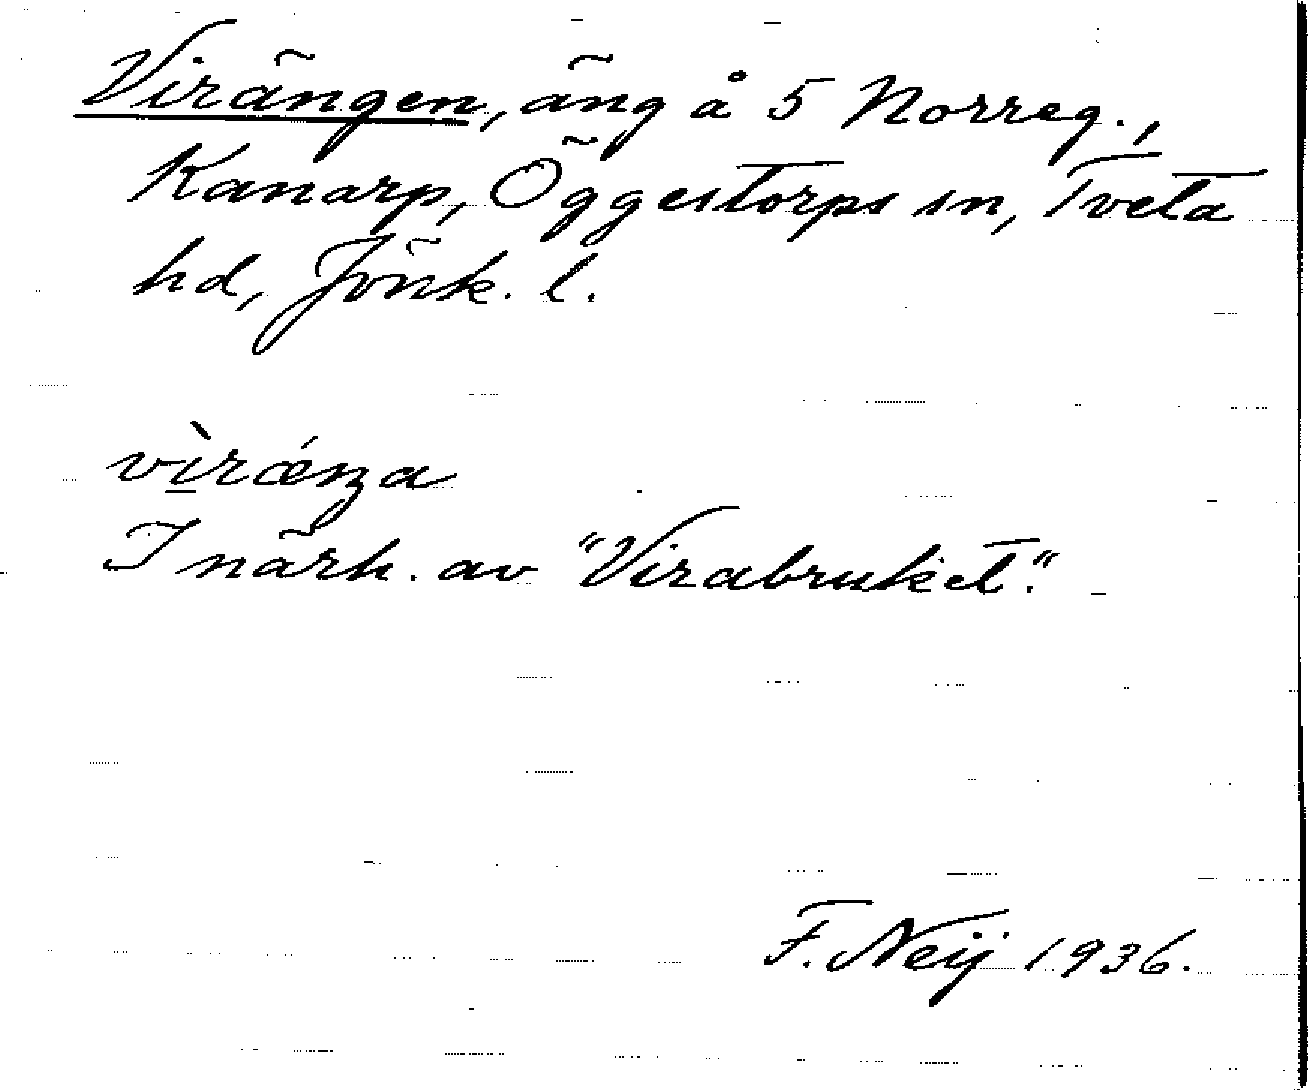 Virängen, äng å 5 Norreg.,
Kanarp, Öggestorps sn, Tveta
hd, Jönk. l.
vìrǽŋa
I närh. av "Virabruket".
F. Neij 1936.